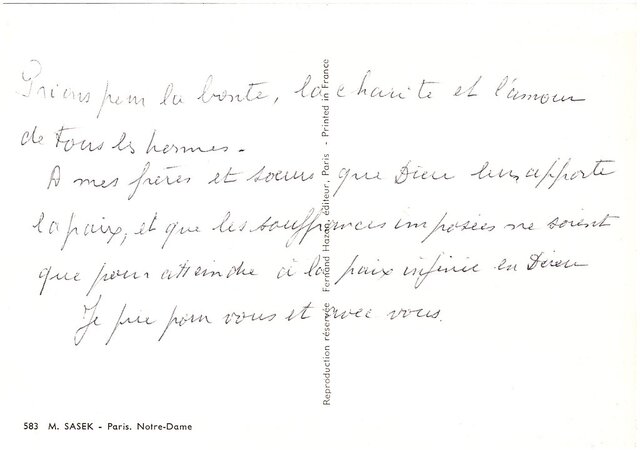 Prions pour la bonte, la charite et l'amour
de tous les hommes.
A mes frères et soeurs que Dieu leur apporte
la paix, et que les souffrances imposées ne soient
que pour atteindre à la paix infinie en Dieu
Je prie pour vous et avec vous.
Reproduction réservée Fernand Hazan, éditeur, Paris - Printed in France
583 M. SASEK - Paris. Notre-Dame